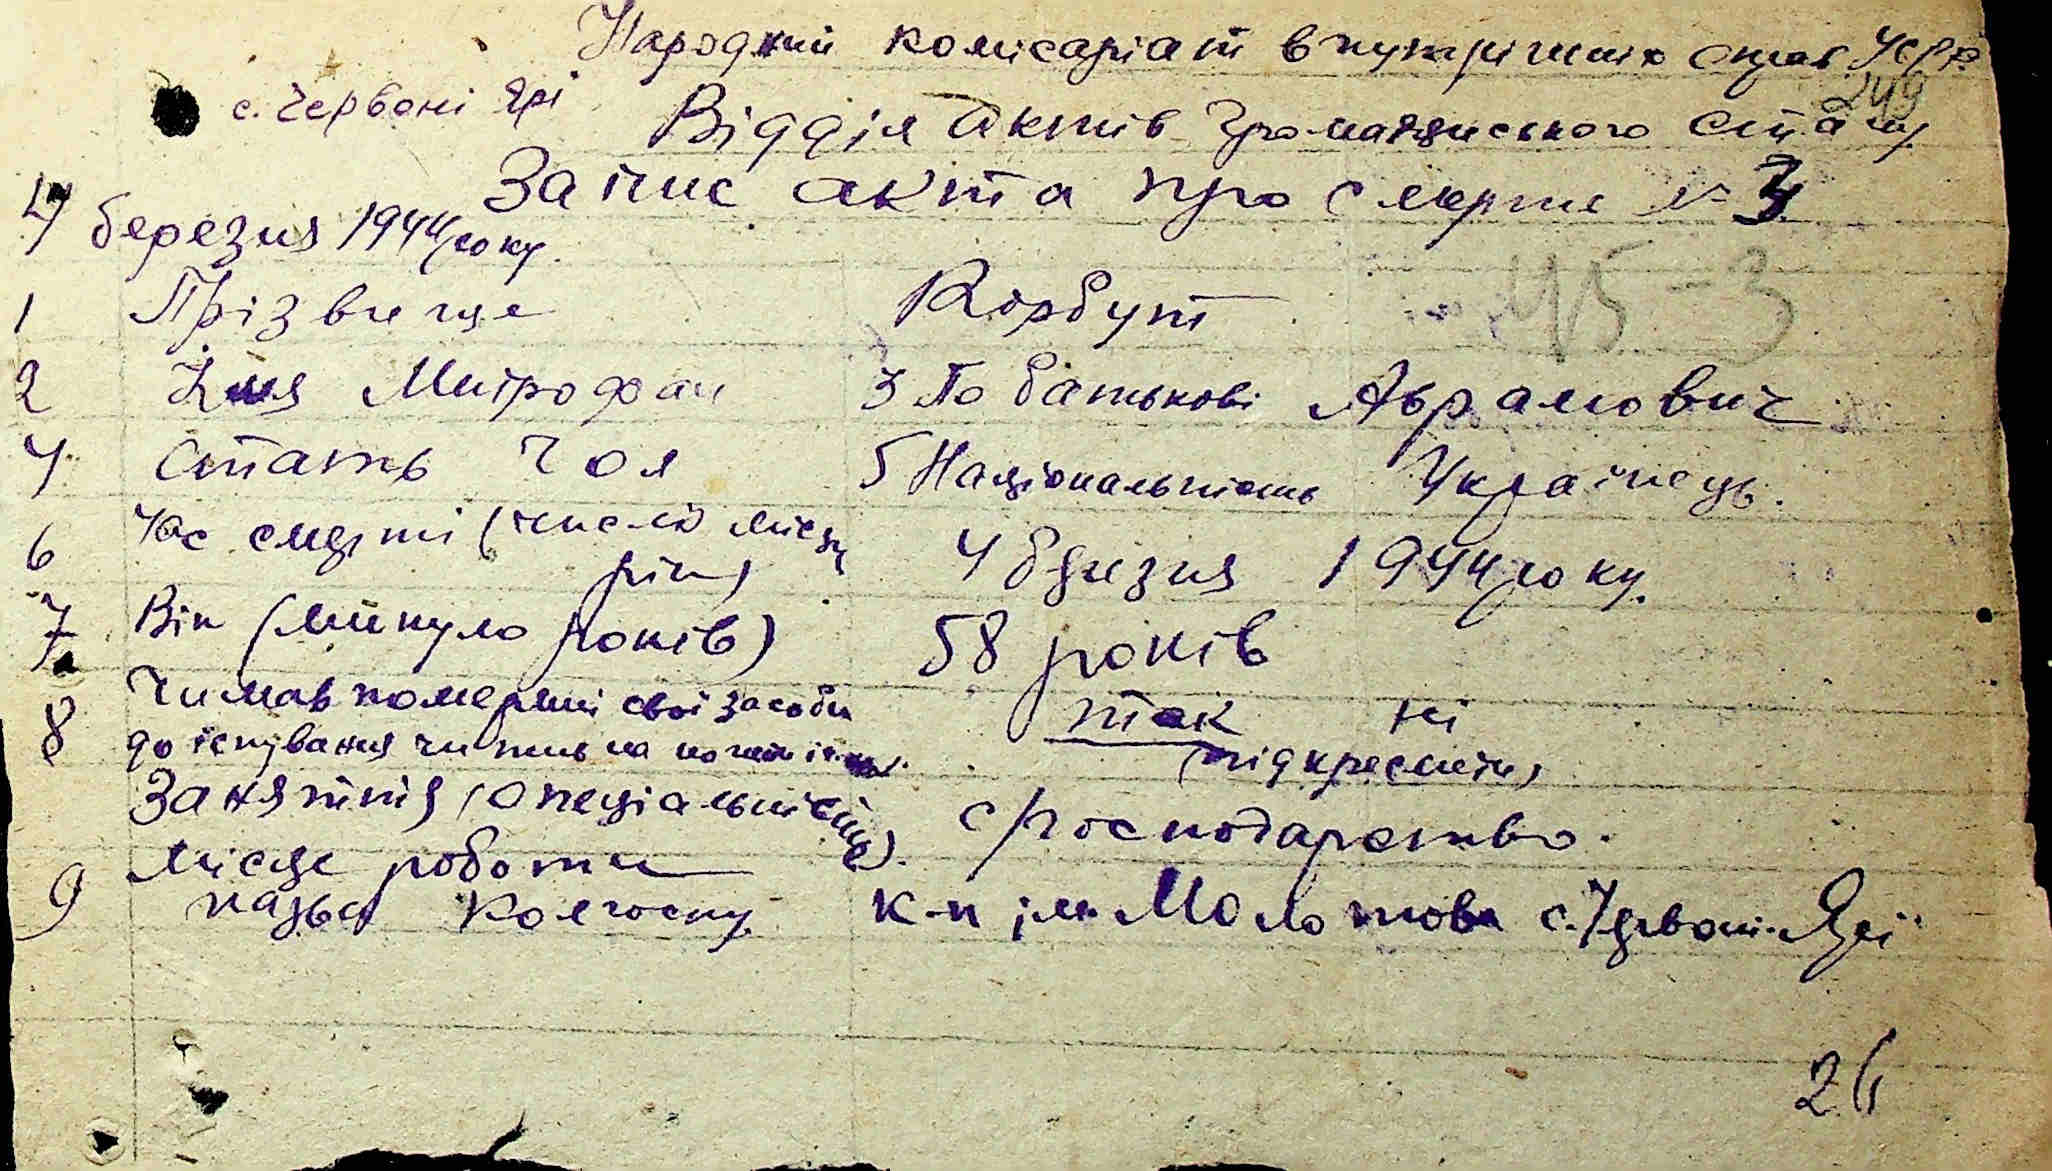 Народний комісаріат внутрішніх справ УСРР
249
с. Червоні Ярі
Відділ Актів Громадянського Стану
Запис акта про смерть № 3
4 березня 1944 року.
45-3
1 Прізвище Корбут
2 Имя Митрофан 3 По батькові Аврамович
4 Стать Чол 5 Національність Українець.
6 Час смерті (число місяц рік) 4 березня 1944 року.
7 Вік (минуло років) 58 років
8 Чи мав померший свої засоби так ні
до існування чи (підкреслити)
Заняття (спеціальність). с/господарство.
9 місце роботи
назва колгоспу к-п ім. Молотова с. Червоні-Ярі
26